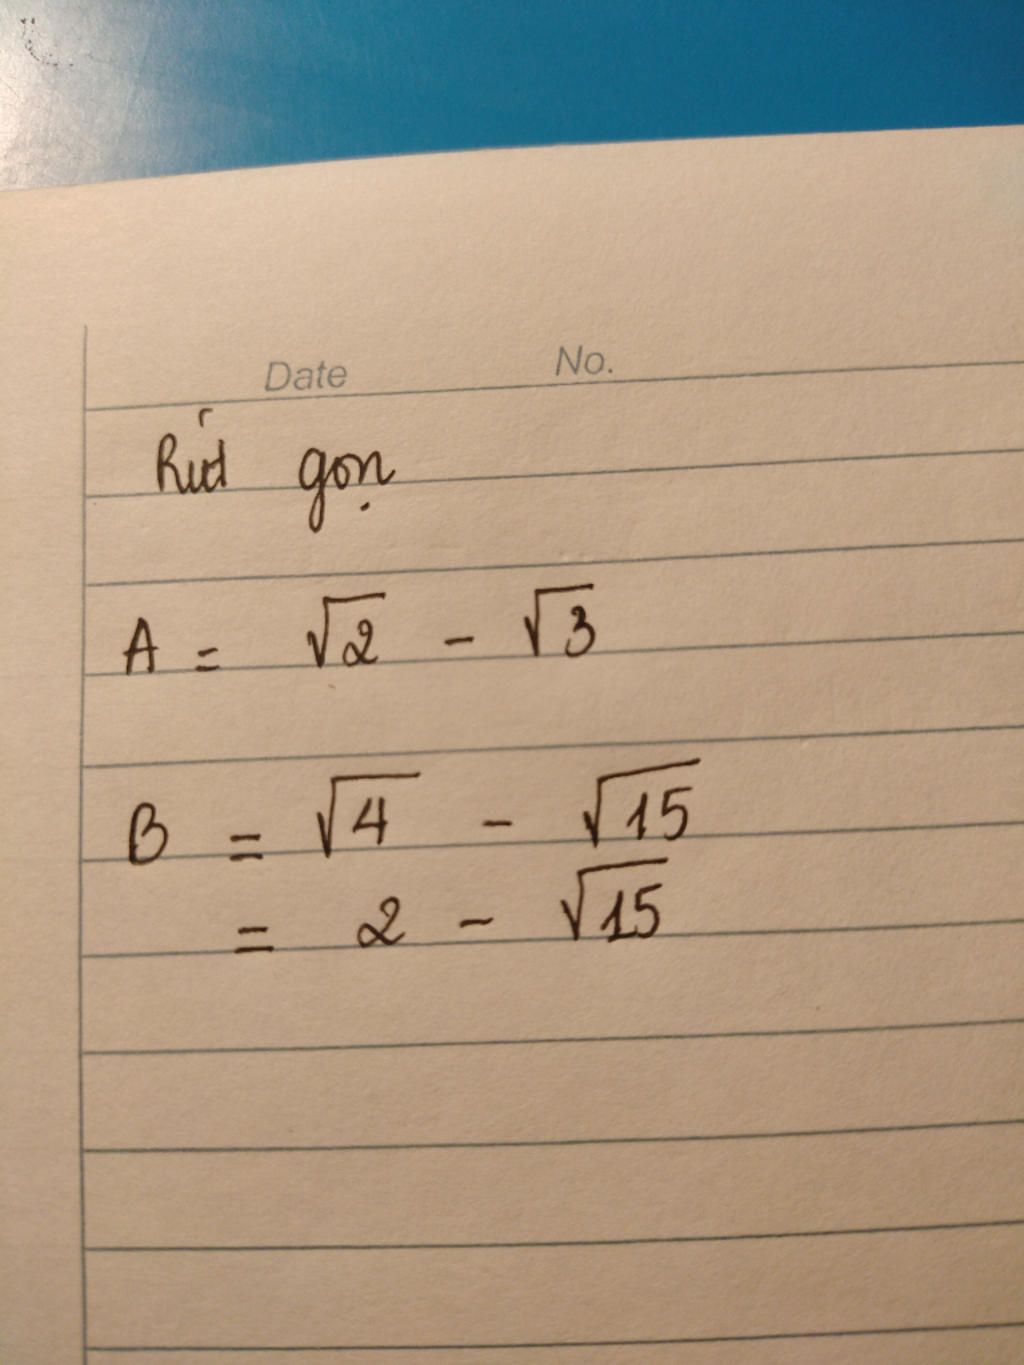 Date No.
Rút gọn
A = √2 - √3
B = √4 - √15
= 2 - √15